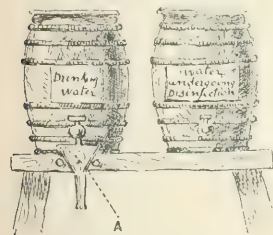 Drinking
water
water
undergoing
Disinfection
A